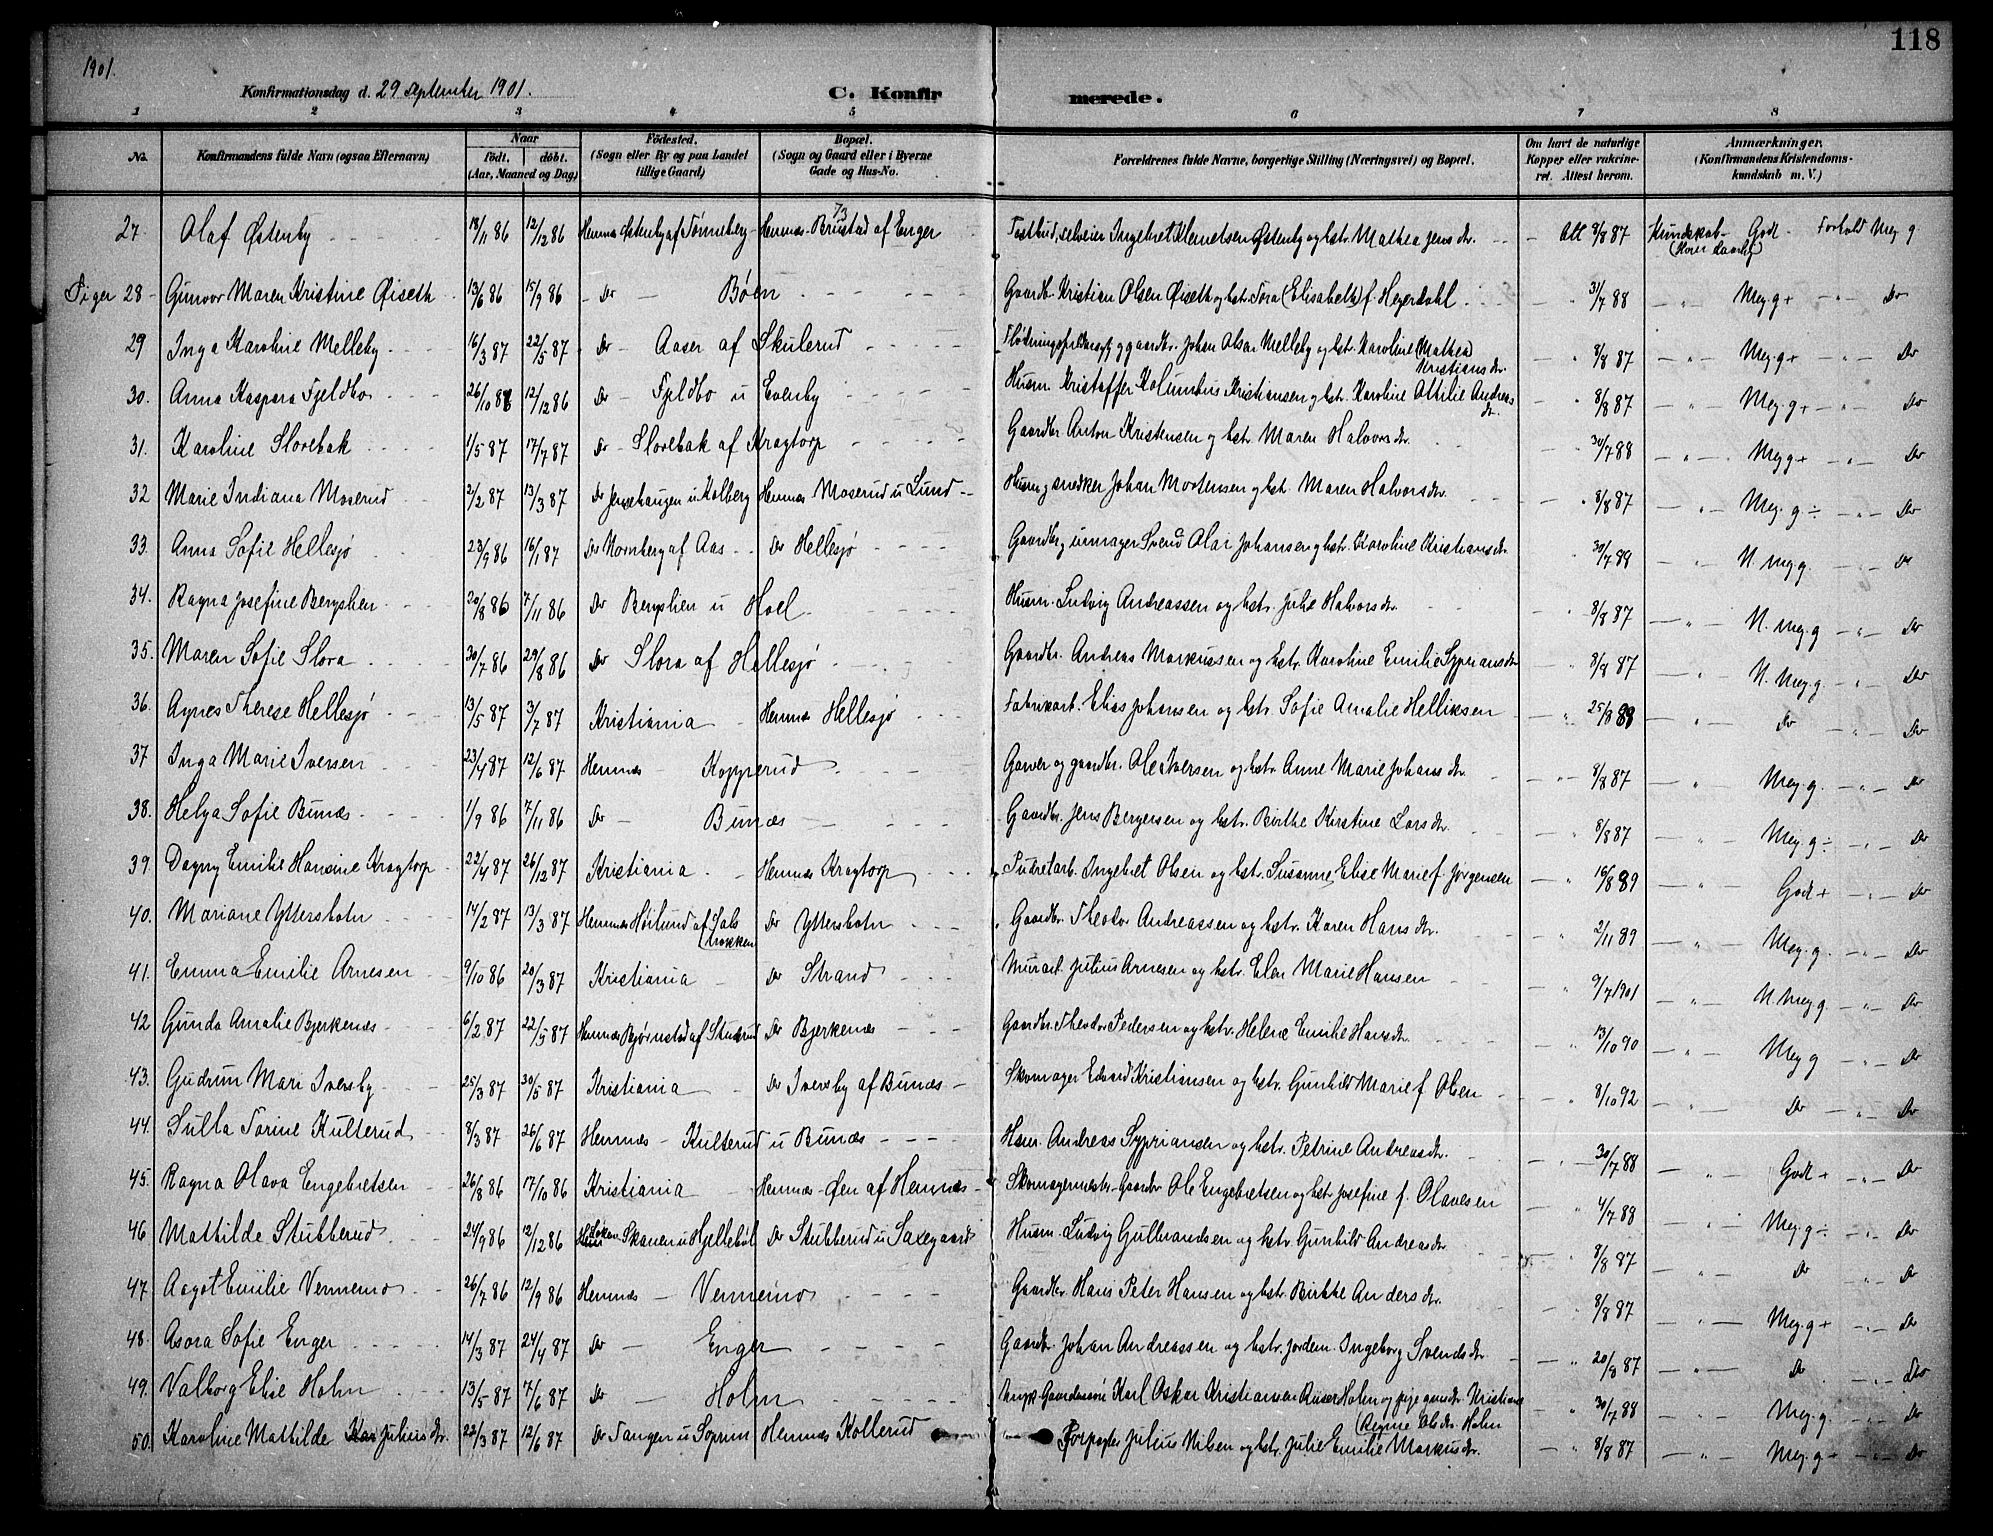 118
1901.
Konfirmationsdag d. 29 september 1901.
C. Konfirmerede.
1 2 3 4 5 6 7 8
No. Konfirmandens fulde Navn (ogsaa Efternavn) Naar født. døbt. (Aar, Maaned og Dag) Fødested. (Sogn eller By og paa Landet tillige Gaard) Bopæl. (Sogn og Gaard eller i Byerne Gade og Hus-No. Forældrenes fulde Navne, borgerlige Stilling (Næringsvei) og Bopæl. Om havt de naturlige Kopper eller vaccineret. Attest herom. Anmærkninger. (Konfirmandens Kristendomskundskab m. V.)
27. Olaf Østenby 18/11 86 12/12 86 Hemnæs Østenby af Tønneberg Hemnæs Brustad af Enger Ingebret Klemetsen Østenby og hstr. Mathea Jens dr. Att 8/8 87 Kundskab Godt Forhold Meg. g.
Piger 28 Gunvor Maren Kristine Øiseth 13/6 86 15/9 86 Do Bøen Gaardbr. Kristian Olsen Øiseth og hstr. Tora (Elisabeth) f. Heyerdahl 31/7 88 Meg. g + Do
29 Inga Karoline Melleby 16/3 87 22/5 87 Do Aaser af Skulerud Johan Olsen Melleby og hstr. Karoline (Mathea) Kristians dr. 8/8 87 Meg. g + Do
30. Anna Kaspara Fjeldbo 26/10 86 12/12 86 Do Fjeldbo u Evenby Husm. Kristoffer Kolumbus Kristiansen og hstr. Karoline Attilie Andreas dr. 8/8 87 Meg. g + Do
31. Karoline Slorebak 1/5 87 17/7 87 Do Slorebak af Kragtorp Gaardbr. Anton Kristensen og hstr. Maren Halvors dr. 30/7 88 Meg g + Do
32 Marie Indiana Moserud 2/2 87 13/3 87 Do Jensehaugen u Kolberg Hemnæs Moserud u Lund Husm og snedker Johan Mortensen og hstr. Maren Halvors dr. 8/8 87 Meg. g ÷ Do
33. Anna Sofie Hellesjø 23/9 86 16/1 87 Do Homberg af Aas Do Hellesjø Gaardbr. Svend Olai Johansen og hstr. Karoline Kristians dr. 30/7 88 N. meg g. Do
34. Ragna Josefine Bergslien 20/8 86 7/11 86 Do Bergslien u Hoel Husm. Ludvig Andreassen og hstr. Julie Halvors dr. 8/8 87 N. meg. g Do
35. Maren Sofie Slora 30/7 86 29/8 86 Do Slora af Hellesjø Gaardbr. Andreas Markussen og hstr. Karoline Emilie Syprians dr 8/8 87 N. Meg. g. Do
36. Agnes Therese Hellesjø 13/5 87 3/7 87 Kristiania Hemnæs Hellesjø Fabrikarb. Elias Johansen og hstr. Sofie Amalie Helliksen 25/8 88 Do Do
37 Inga Marie Iversen 23/4 87 12/6 87 Hemnæs Kopperud Garver og gaardbr. Ole Iversen og hstr. Anne Marie Johans dr. 8/8 87 Meg. g. Do
38. Helga Sofie Bunæs 1/9 86 7/11 86 Do Bunæs Gaardbr. Jens Bergersen og hstr. Birthe Kirstine Lars dr. 8/8 87 Meg. g ÷ Do
39. Dagny Emilie Hansine Kragtorp 22/4 87 26/12 87 Kristiania Hemnæs Kragtorp Ingebret Olsen og hstr. Susanne Elise Marie f. Jørgensen 16/8 89 Godt + Do
40. Mariane Yttersbotn 14/2 87 13/3 87 Hemnæs Høilund af Gaardbr. Theodor Andreassen og hstr. Karen Hans dr. Do Yttersbotn 2/11 89 Meg. g. Do
41. Emma Emilie Arnesen 9/10 86 20/3 87 Kristiania Do Strand Murarb. Julius Arnesen og hstr. Elen Marie Hansen 9/7 1901 N. meg g. Do
42 Gunda Amalie Bjerkenæs 6/2 87 22/5 87 Hemnæs Bjørnstad af Skulerud Do Bjerkenæs Gaardbr. Theodor Pedersen og hstr. Helene Emilie Hans dr. 13/10 90 Meg g Do
43. Gudrun Mari Iversby 25/3 87 30/5 87 Kristiania Do Iversby af Bunæs Skomager Edvard Kristiansen og hstr. Gunhild Marie f. Olsen 8/10 92 Do Do
44. Sulla Torine Kulterud 8/3 87 26/6 87 Hemnæs Kulterud u Bunæs Husm. Andreas Syprianssen og hstr. Petrine Andreas dr. 30/7 88 Godt + Do
45. Ragna Olava Engebretsen 26/8 86 17/10 86 Kristiania Hemnæs Øen af Hemnæs Skomagermester Gaardbr Ole Engebretsen og hstr. Josefine f. Olavesen 4/7 88 Meg. g ÷ Do
46 Mathilde Stubberud 24/9 86 12/12 86 Skauen u Hjellebøl Do Stubberud u Saxegaard Husm. Ludvig Gulbrandsen og hstr. Gunhild Andreas dr. 8/8 87 Do Do
47. Aagot Emilie Vennemo 26/7 86 12/9 86 Hemnæs Vennemo Gaardbr. Hans Peter Hansen og hstr. Birthe Anders dr. 8/8 87 Meg. g + Do
48. Asora Sofie Enger 14/3 87 24/4 87 Do Enger Gaardbr. Johan Andreassen og hstr. jordem. Ingeborg Svends dr. 20/8 87 Do Do
49. Valborg Elise Holm 13/5 87 7/6 87 Do Holm Ungk. Gaardmand Karl Oskar Kristiansen Ruser Holm og pige Kristiane (Regine Ols dr. Holm 30/7 88 Meg. g. Do
50. Karoline Mathilde Julius dr. 22/3 87 12/6 87 Do Tangen u Soprim Hemnæs Kollerud Forpagter Julius Nilsen og hstr. Julie Emilie Markus dr. 8/8 87 Meg. g + Do